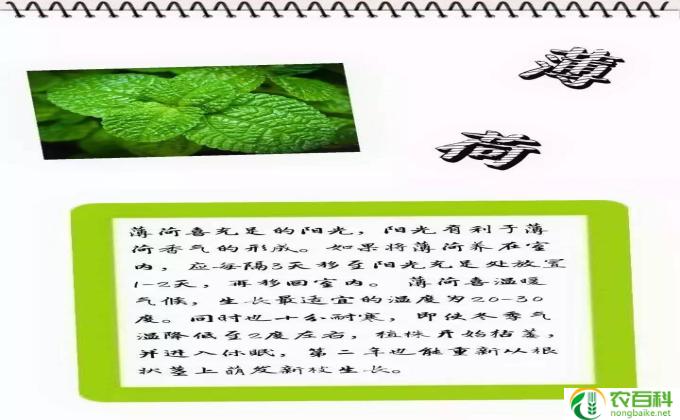 薄
荷
薄荷喜充足的阳光，阳光有利于薄
荷香气的形成。如果将薄荷养在室
内，应每隔3天移至阳光充足处放置
1-2天，再移回室内。薄荷喜温暖
气候，生长最适宜的温度为20-30
度。同时也十分耐寒，即使冬季气
温降低至2度左右，植株开始枯萎，
并进入休眠，第二年也能重新从根
状茎上萌发新枝生长。
农百科
nongbaike.net